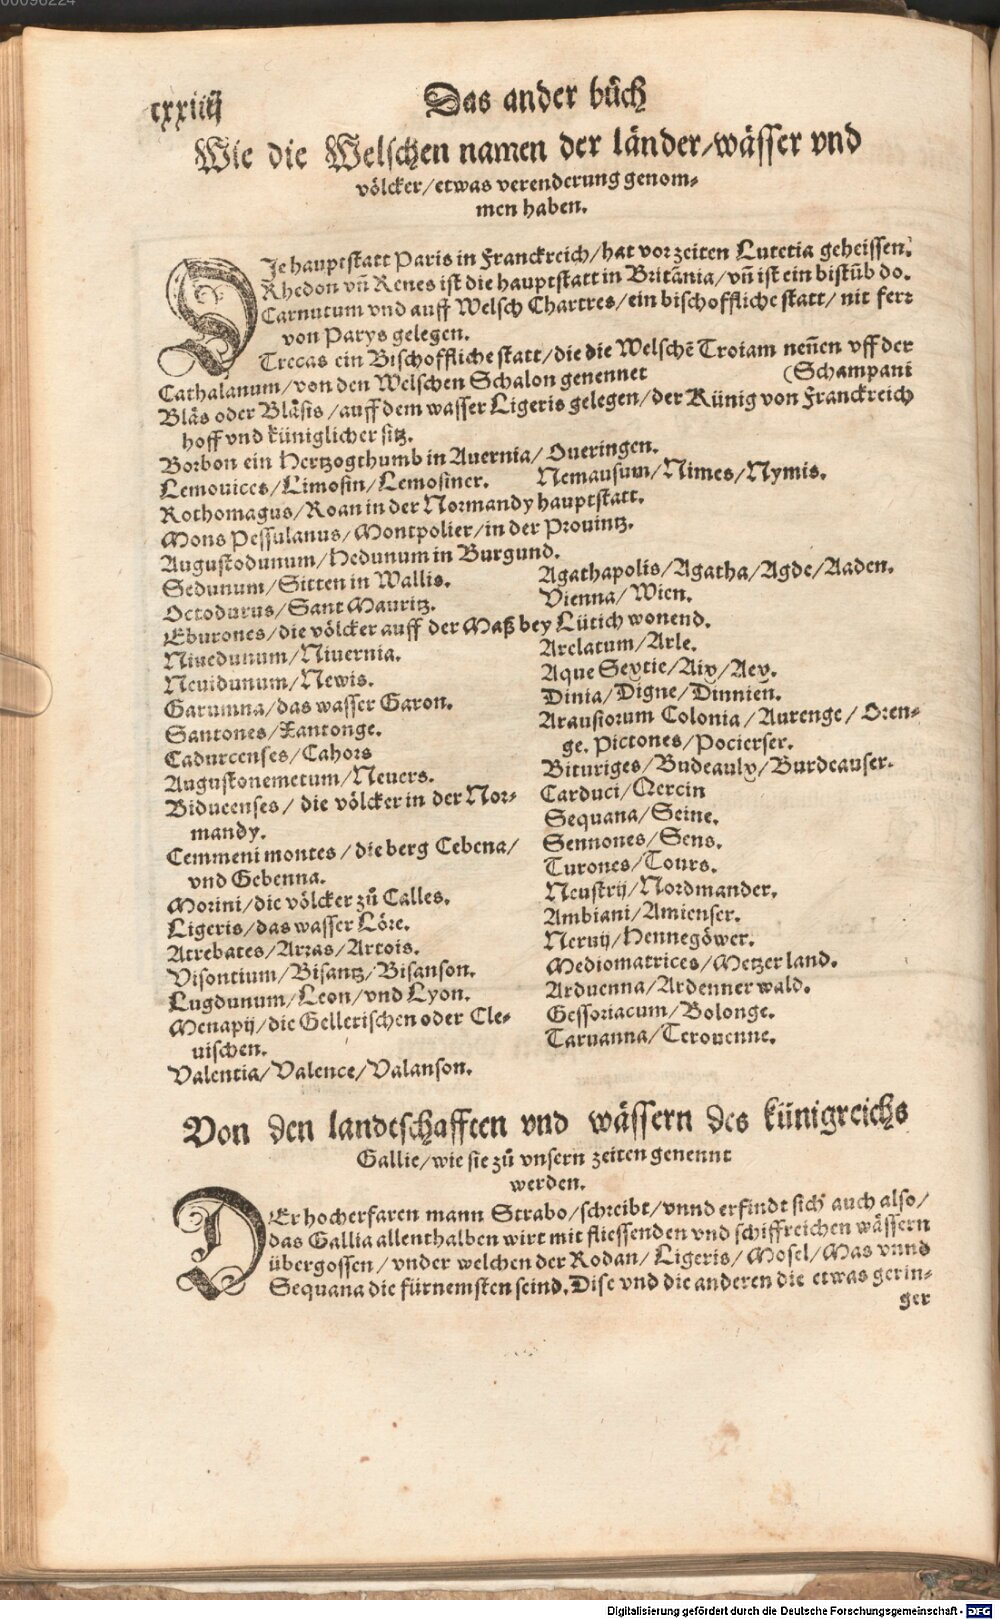 00096224
cxxiiij
Das ander bůch
Wie die Welschen namen der länder/wässer vnd
völcker/etwas verenderung genom-
men haben.
DIe hauptstatt Paris in Franckreich/hat vorzeiten Lutetia geheissen.
Rhedon vñ Renes ist die hauptstatt in Britānia/vñ ist ein bistūb do.
Carnutum vnd auff Welsch Chartres/ein bischoffliche statt/nit ferr
von Parys gelegen.
Trecas ein Bischoffliche statt/die die Welschē Troiam neñen vff der
Cathalanum/von den Welschen Schalon genennet (Schampani
Bläs oder Bläsis/auff dem wasser Ligeris gelegen/der Künig von Franckreich
hoff vnd küniglicher sitz.
Borbon ein Hertzogthumb in Auernia/Oueringen.
Lemouices/Limosin/Lemosiner. Nemausum/Nimes/Nymis.
Rothomagus/Roan in der Normandy hauptstatt.
Mons Pessulanus/Montpolier/in der Prouintz.
Augustodunum/Hedunum in Burgund.
Sedunum/Sitten in Wallis.
Octodurus/Sant Mauritz.
Agathapolis/Agatha/Agde/Aaden.
Vienna/Wien.
Eburones/die völcker auff der Maß bey Lütich wonend.
Niuedunum/Niuernia.
Neuidunum/Newis.
Garumna/das wasser Garon.
Santones/Xantonge.
Cadurcenses/Cahors
Augustonemetum/Neuers.
Biducenses/die völcker in der Nor-
mandy.
Cemmeni montes/die berg Cebena/
vnd Gebenna.
Morini/die völcker zů Calles.
Ligeris/das wasser Löre.
Atrebates/Arras/Artois.
Visontium/Bisantz/Bisanson.
Lugdunum/Leon/vnd Lyon.
Menapij/die Gellerischen oder Cle-
uischen.
Valentia/Valence/Valanson.
Arelatum/Arle.
Aque Sextie/Aix/Aex.
Dinia/Digne/Dinnien.
Arausiorum Colonia/Aurenge/Oren-
ge. Pictones/Pocierser.
Bituriges/Budeaulx/Burdeauser.
Carduci/Quercin
Sequana/Seine.
Sennones/Sens.
Turones/Tours.
Neustrij/Nordmander.
Ambiani/Amienser.
Neruij/Hennegöwer.
Mediomatrices/Metzer land.
Arduenna/Ardenner wald.
Gessoriacum/Bolonge.
Taruanna/Terouenne.
Von den landtschafften vnd wässern des künigreichs
Gallie/wie sie zů vnsern zeiten genennt
werden.
DEr hocherfaren mann Strabo/schreibt/vnnd erfindt sich auch also/
das Gallia allenthalben wirt mit fliessenden vnd schiffreichen wässern
übergossen/vnder welchen der Rodan/Ligeris/Mosel/Mas vnnd
Sequana die fürnemsten seind. Dise vnd die anderen die etwas gerin-
ger
Digitalisierung gefördert durch die Deutsche Forschungsgemeinschaft - DFG